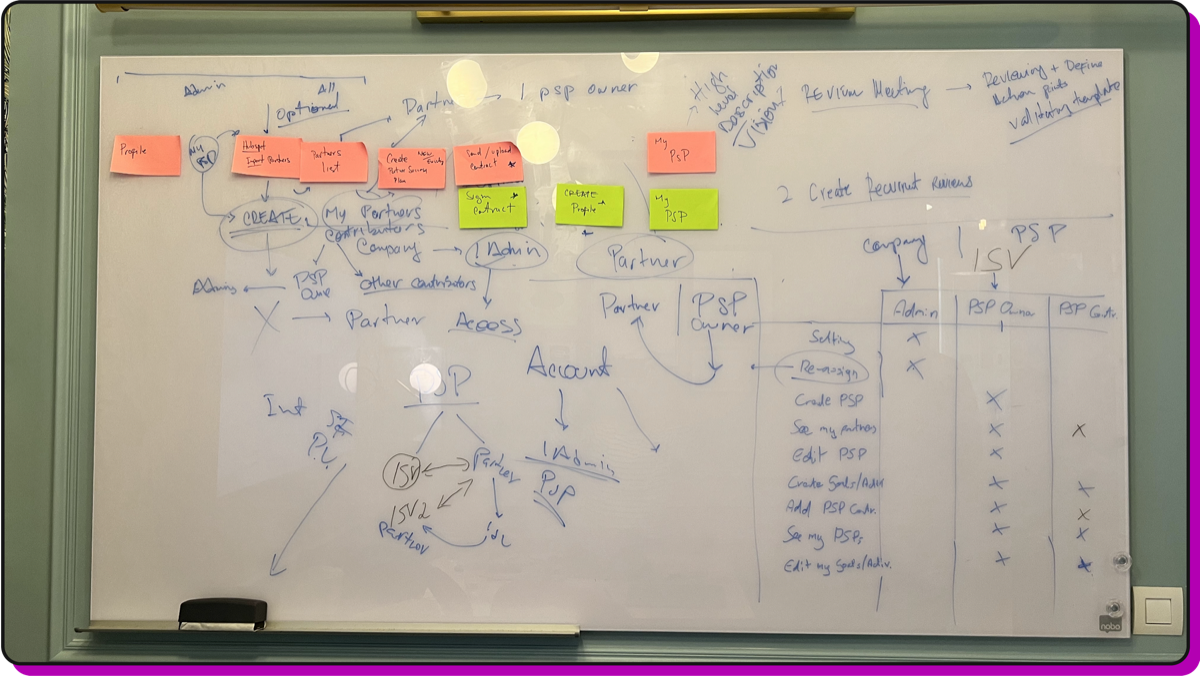 Admin
All
Optional
1 PSP owner
High
level
Description
Vision?
REVIEW Meeting
Reviewing + Define
Action
Validating template
Profile
My
PSP
Hubspot
Import Partners
Partners
List
Create
Plan
Send/upload
contract
My
PSP
Sign
contract
CREATE
Profile
My
PSP
2 Create Recurrent Reviews
CREATE
My Partners
contributors
Company
1 Admin
Partner
Company
PSP
ISV
Admin
PSP
other contributors
X
Partner Access
Partner
PSP
owner
Admin
PSP Owner
PSP Contr.
Setting X
Re-assign X
Create PSP X
See my partners X X
Edit PSP X
Create Goals/Activ X X
Add PSP Contr. X X
See my PSPs X X
Edit my Goals/Activ. X X
PSP
Account
Int
ISV
Partner
1 Admin
PSP
ISV2
Partner
nobo